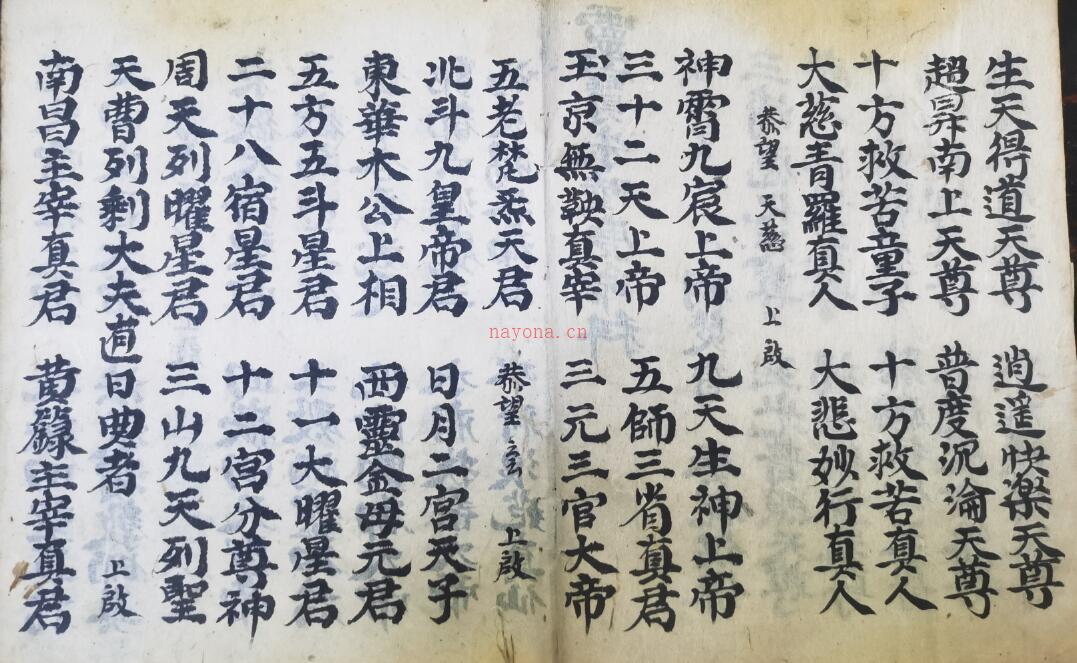 生天得道天尊　逍遥快楽天尊
超昇南上天尊　普度沉淪天尊
十方救苦童子　十方救苦真人
大慈青羅真人　大悲妙行真人
恭望　天慈　上啟
神霄九宸上帝　九天生神上帝
三十二天上帝　五師三省真君
玉京無鞅真宰　三元三官大帝
五老梵炁天君　恭望　上啟
北斗九皇帝君　日月二宮天子
東華木公上相　西靈金母元君
五方五斗星君　十一大曜星君
二十八宿星君　十二宮分尊神
周天列曜星君　三山九天列聖
天曹列剩大夫直日典者　上啟
南昌主宰真君　黄籙主宰真君
nayona.cn